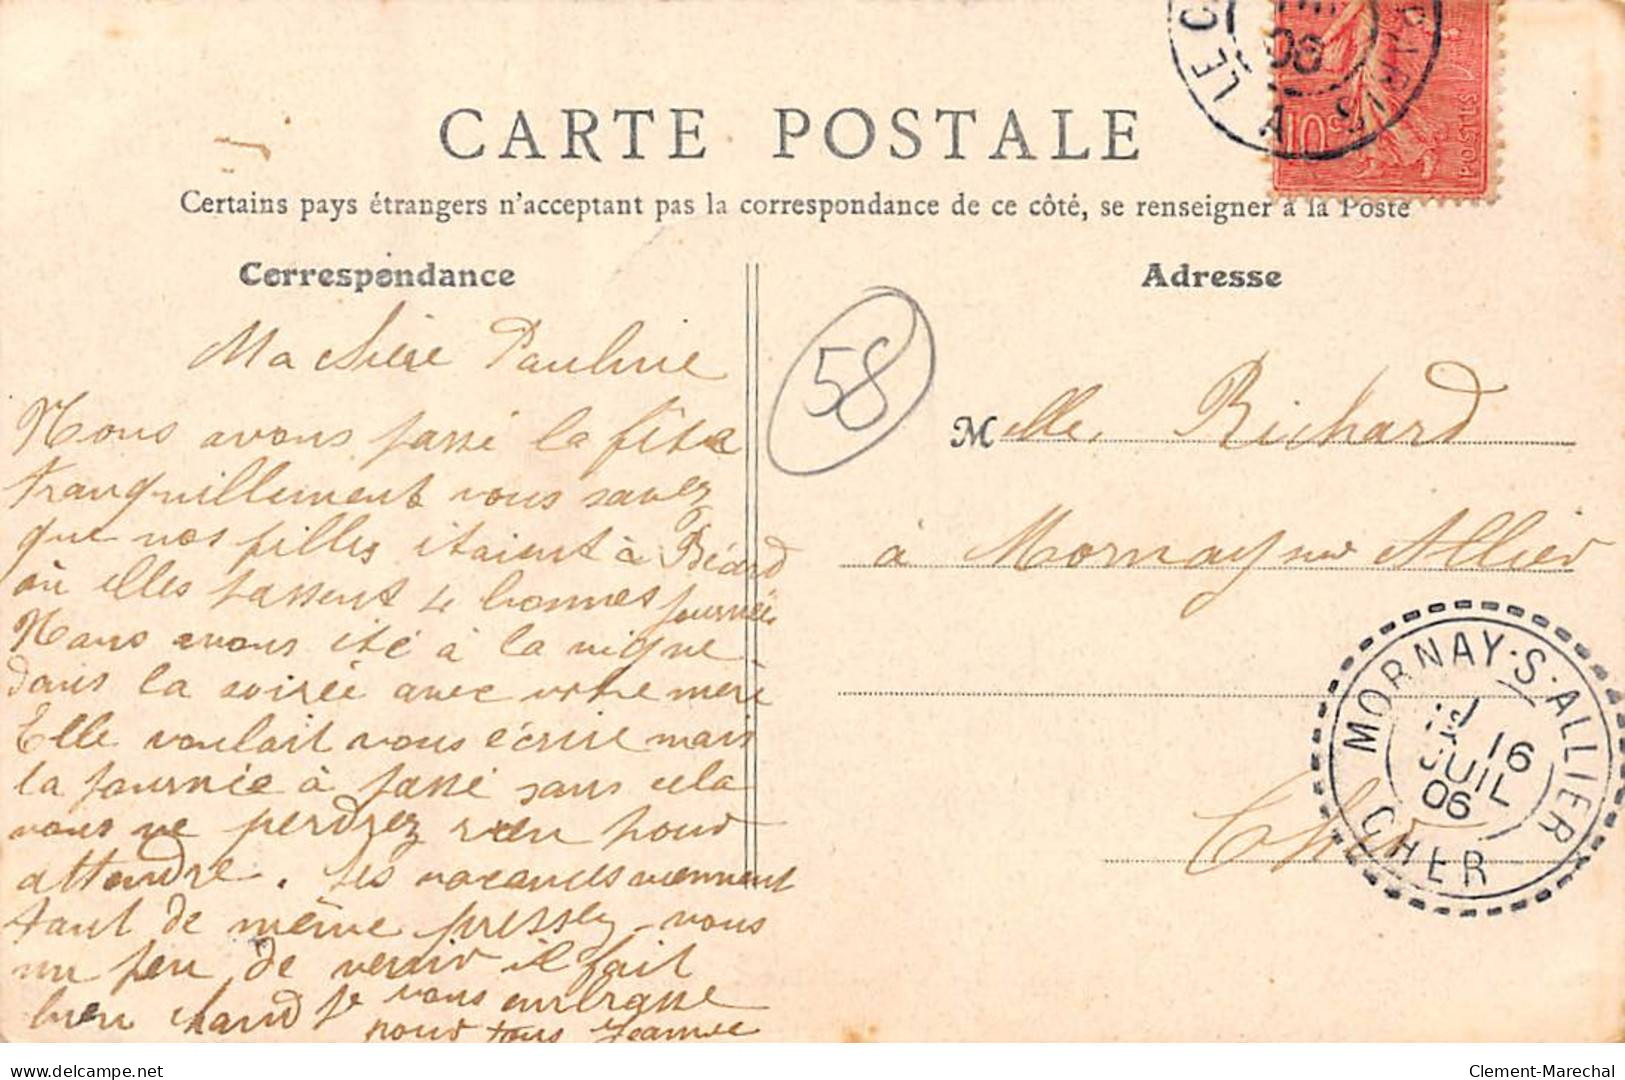 CARTE POSTALE
Certains pays étrangers n'acceptant pas la correspondance de ce côté, se renseigner à la Poste
Correspondance
Adresse
LE
PARIS A
06
10c
POSTES
58
Ma chère Pauline
Nous avons passé la fête
tranquillement vous savez
que nos filles étaient à Béard
où elles passent 4 bonnes journées
Nous avons été à la vigne
dans la soirée avec votre mère
Elle voulait vous écrire mais
la journée à passé sans cela
vous ne perdrez rien pour
attendre. Les vacances viennent
tout de même pressez-vous
un peu de venir il fait
bien chaud Je vous embrasse
pour tous Jeanne
Mlle Richard
à Mornay sur Allier
Cher
MORNAY-S-ALLIER
16
JUIL
06
CHER
Clement-Marechal